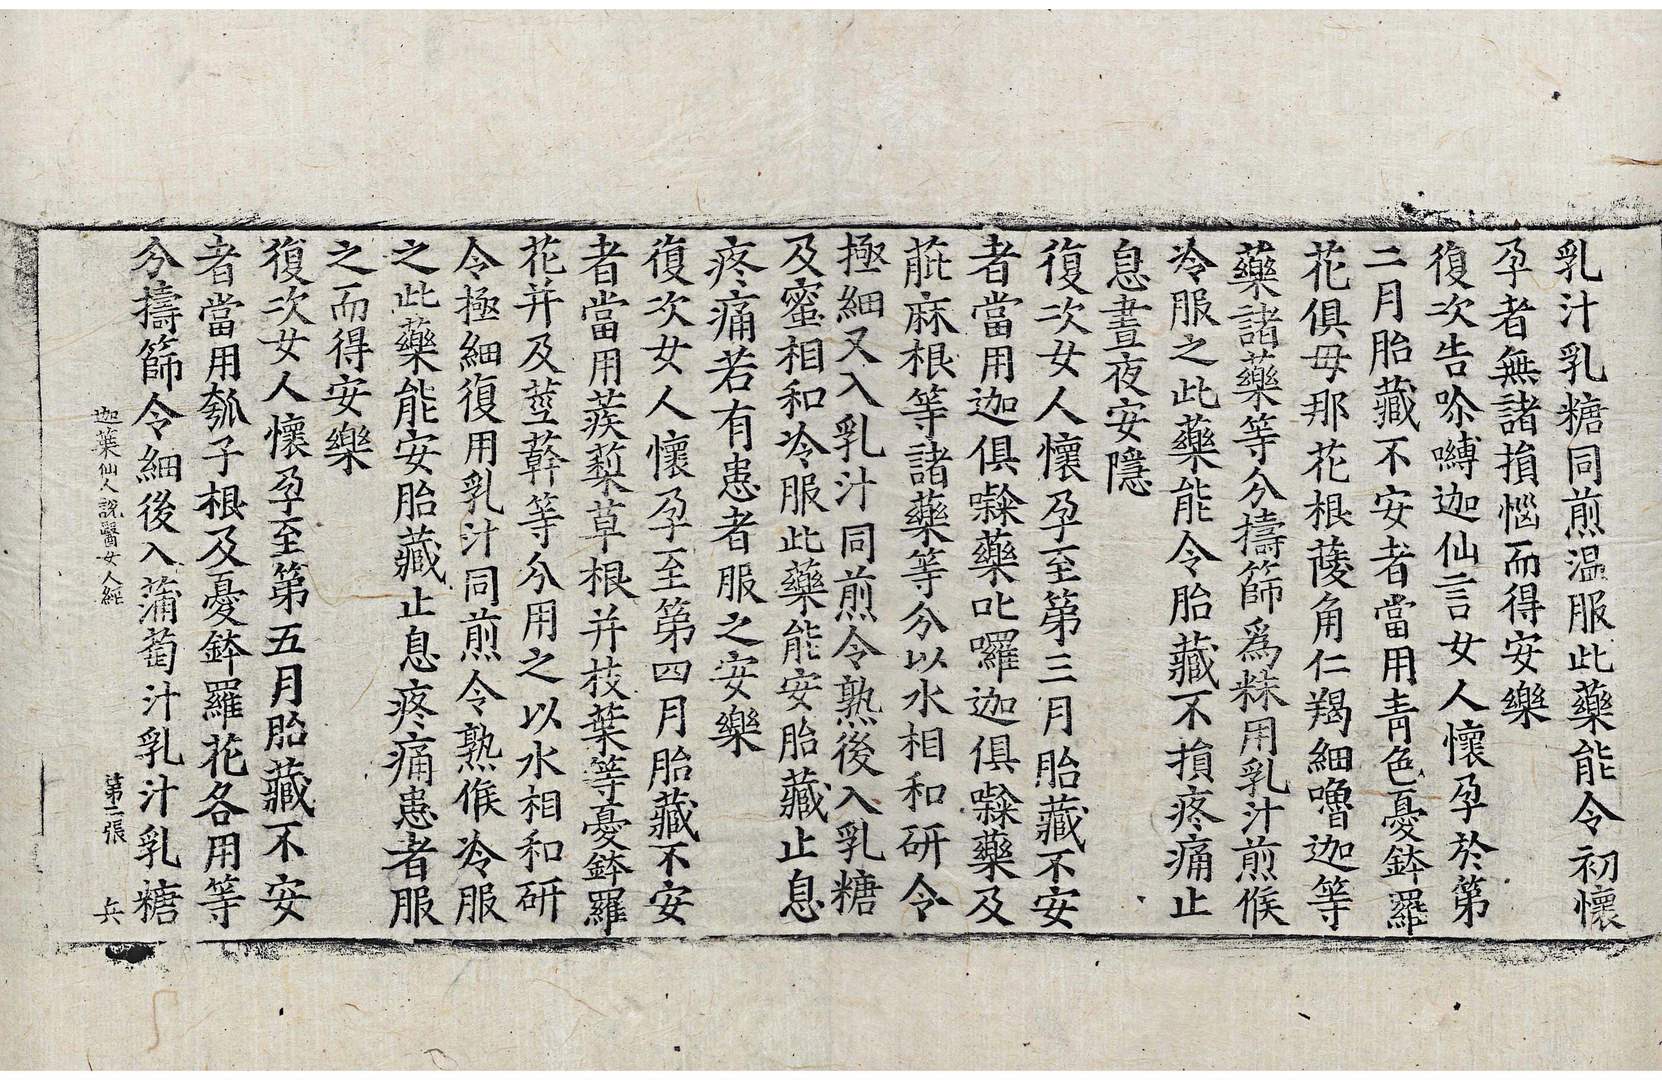 乳汁乳糖同煎温服此藥能令初懷
孕者無諸損惱而得安樂
復次告尒嚩迦仙言女人懷孕於第
二月胎藏不安者當用青色憂鉢羅
花俱毋那花根蔆角仁羯細嚕迦等
藥諸藥等分擣篩爲粖用乳汁煎候
冷服之此藥能令胎藏不損疼痛止
息晝夜安隱
復次女人懷孕至第三月胎藏不安
者當用迦俱藥叱囉迦俱藥及
萉麻根等諸藥等分以水相和研令
極細又入乳汁同煎令熟後入乳糖
及蜜相和冷服此藥能安胎藏止息
疼痛若有患者服之安樂
復次女人懷孕至第四月胎藏不安
者當用蒺蔾草根并枝葉等憂鉢羅
花并及莖幹等分用之以水相和研
令極細復用乳汁同煎令熟候冷服
之此藥能安胎藏止息疼痛患者服
之而得安樂
復次女人懷孕至第五月胎藏不安
者當用瓠子根及憂鉢羅花各用等
分擣篩令細後入蒲萄汁乳汁乳糖
迦葉仙人說醫女人經 第二張 兵